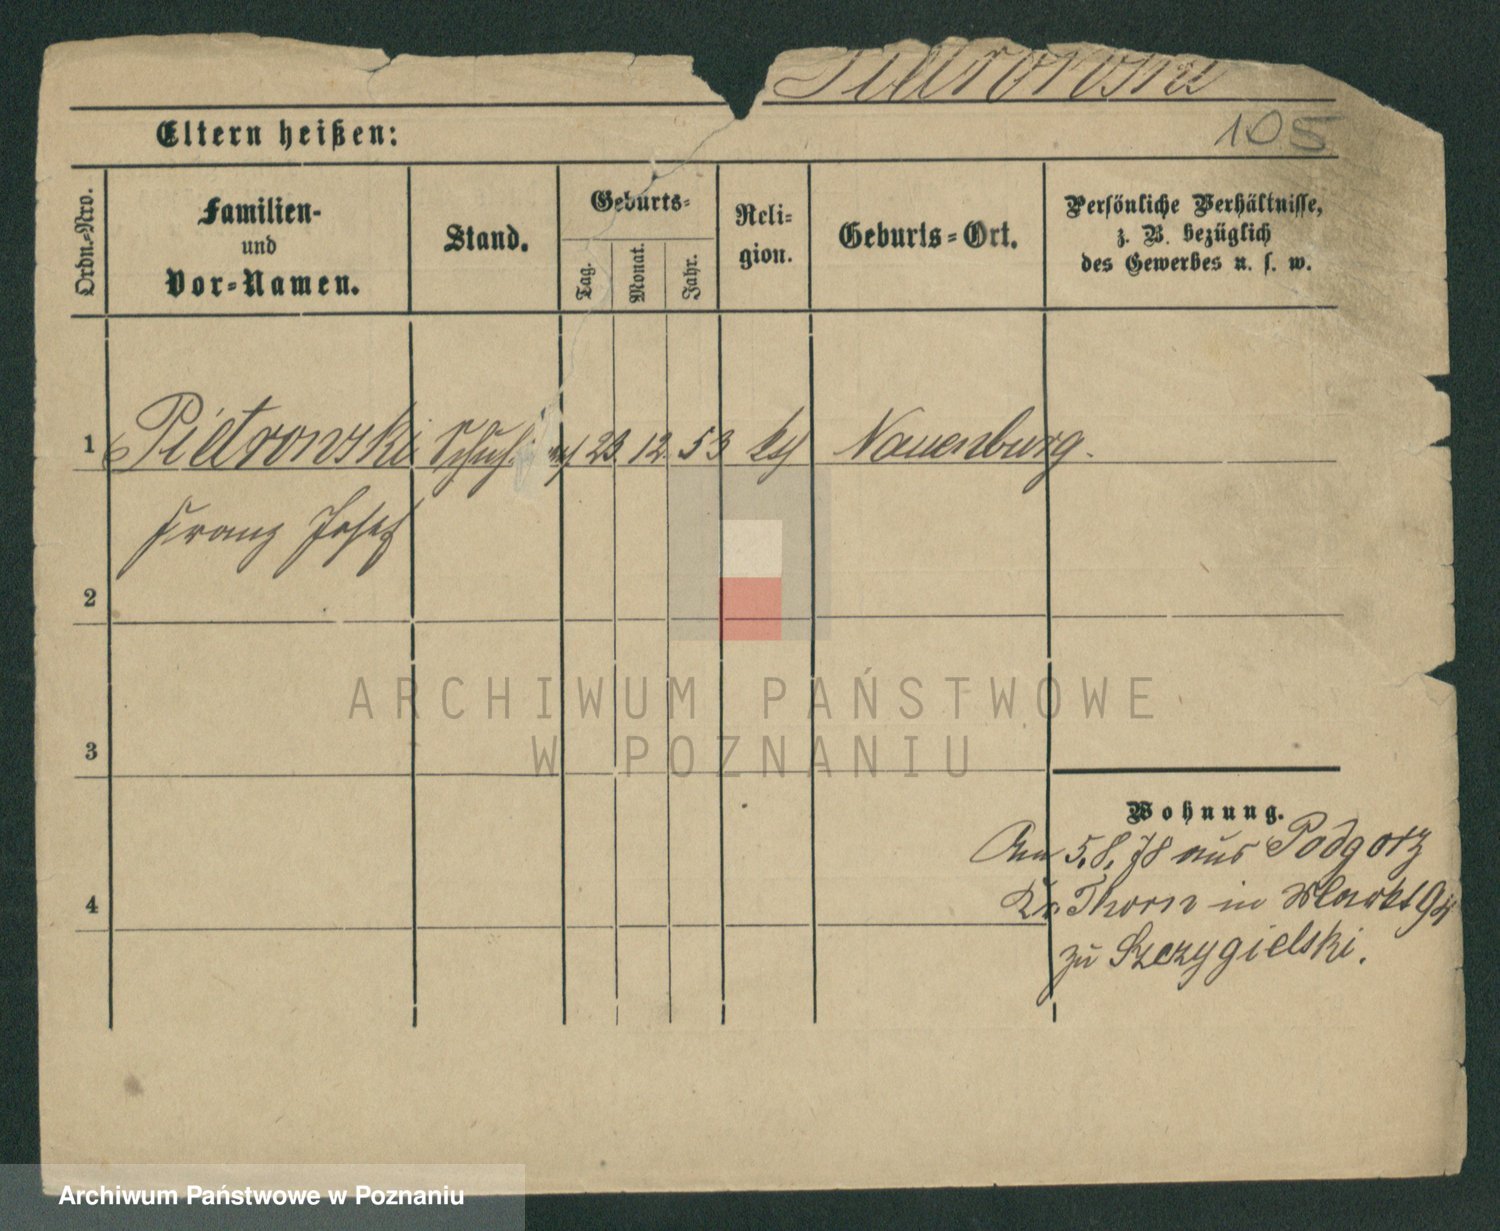 Pietrowski
105
Eltern heißen:
Ordn.-Nro.
Familien-
und
Vor-Namen.
Stand.
Geburts-
Tag.
Monat.
Jahr.
Reli-
gion.
Geburts-Ort.
Persönliche Verhältnisse,
z. B. bezüglich
des Gewerbes u. s. w.
1 Pietrowski 23 12. 53 Nauenburg.
Franz Josef
2
3
Wohnung.
Am 5.8.78 aus Podgorz
4
Kr. Thorn in Markt 94
zu Szczygielski.
ARCHIWUM PAŃSTWOWE
W POZNANIU
Archiwum Państwowe w Poznaniu